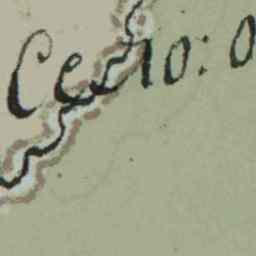 Cedio: o